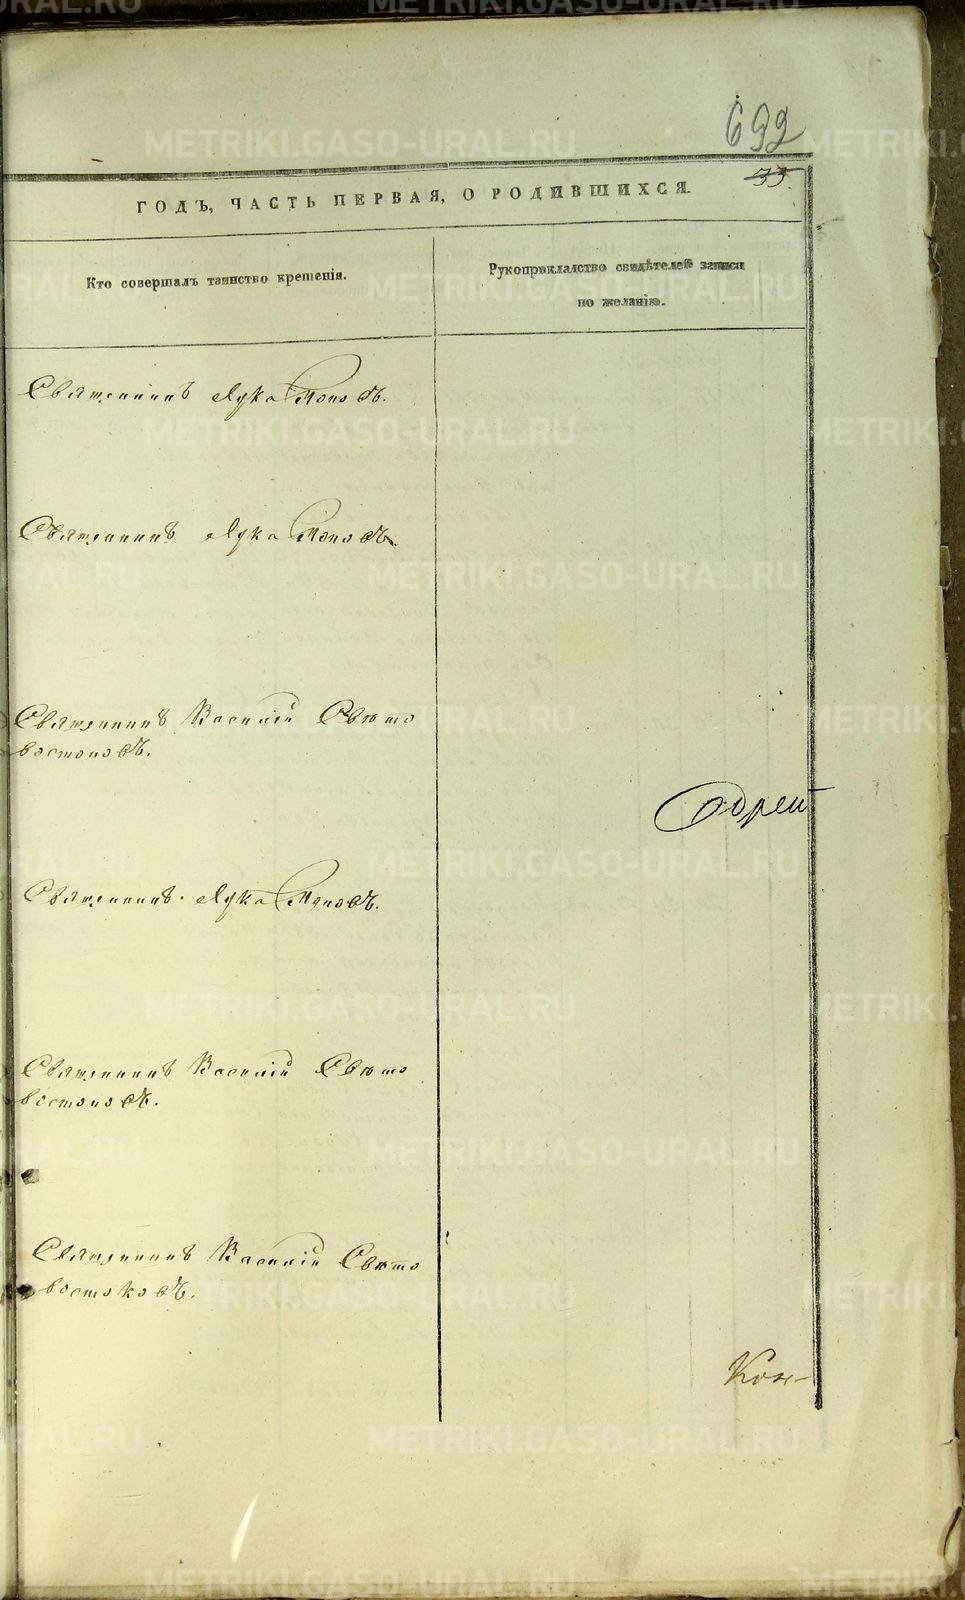 692
33.
ГОДЪ, ЧАСТЬ ПЕРВАЯ, О РОДИВШИХСЯ.
Кто совершалъ таинство крещенія.
Рукоприкладство свидѣтелей записи
по желанію.
Священникъ Лука Поповъ.
Священникъ Лука Поповъ.
Священникъ Василій Свѣто
востоковъ.
Священникъ Лука Поповъ.
Священникъ Василій Свѣто
востоковъ.
Священникъ Василій Свѣто
востоковъ.
METRIKI.GASO-URAL.RU